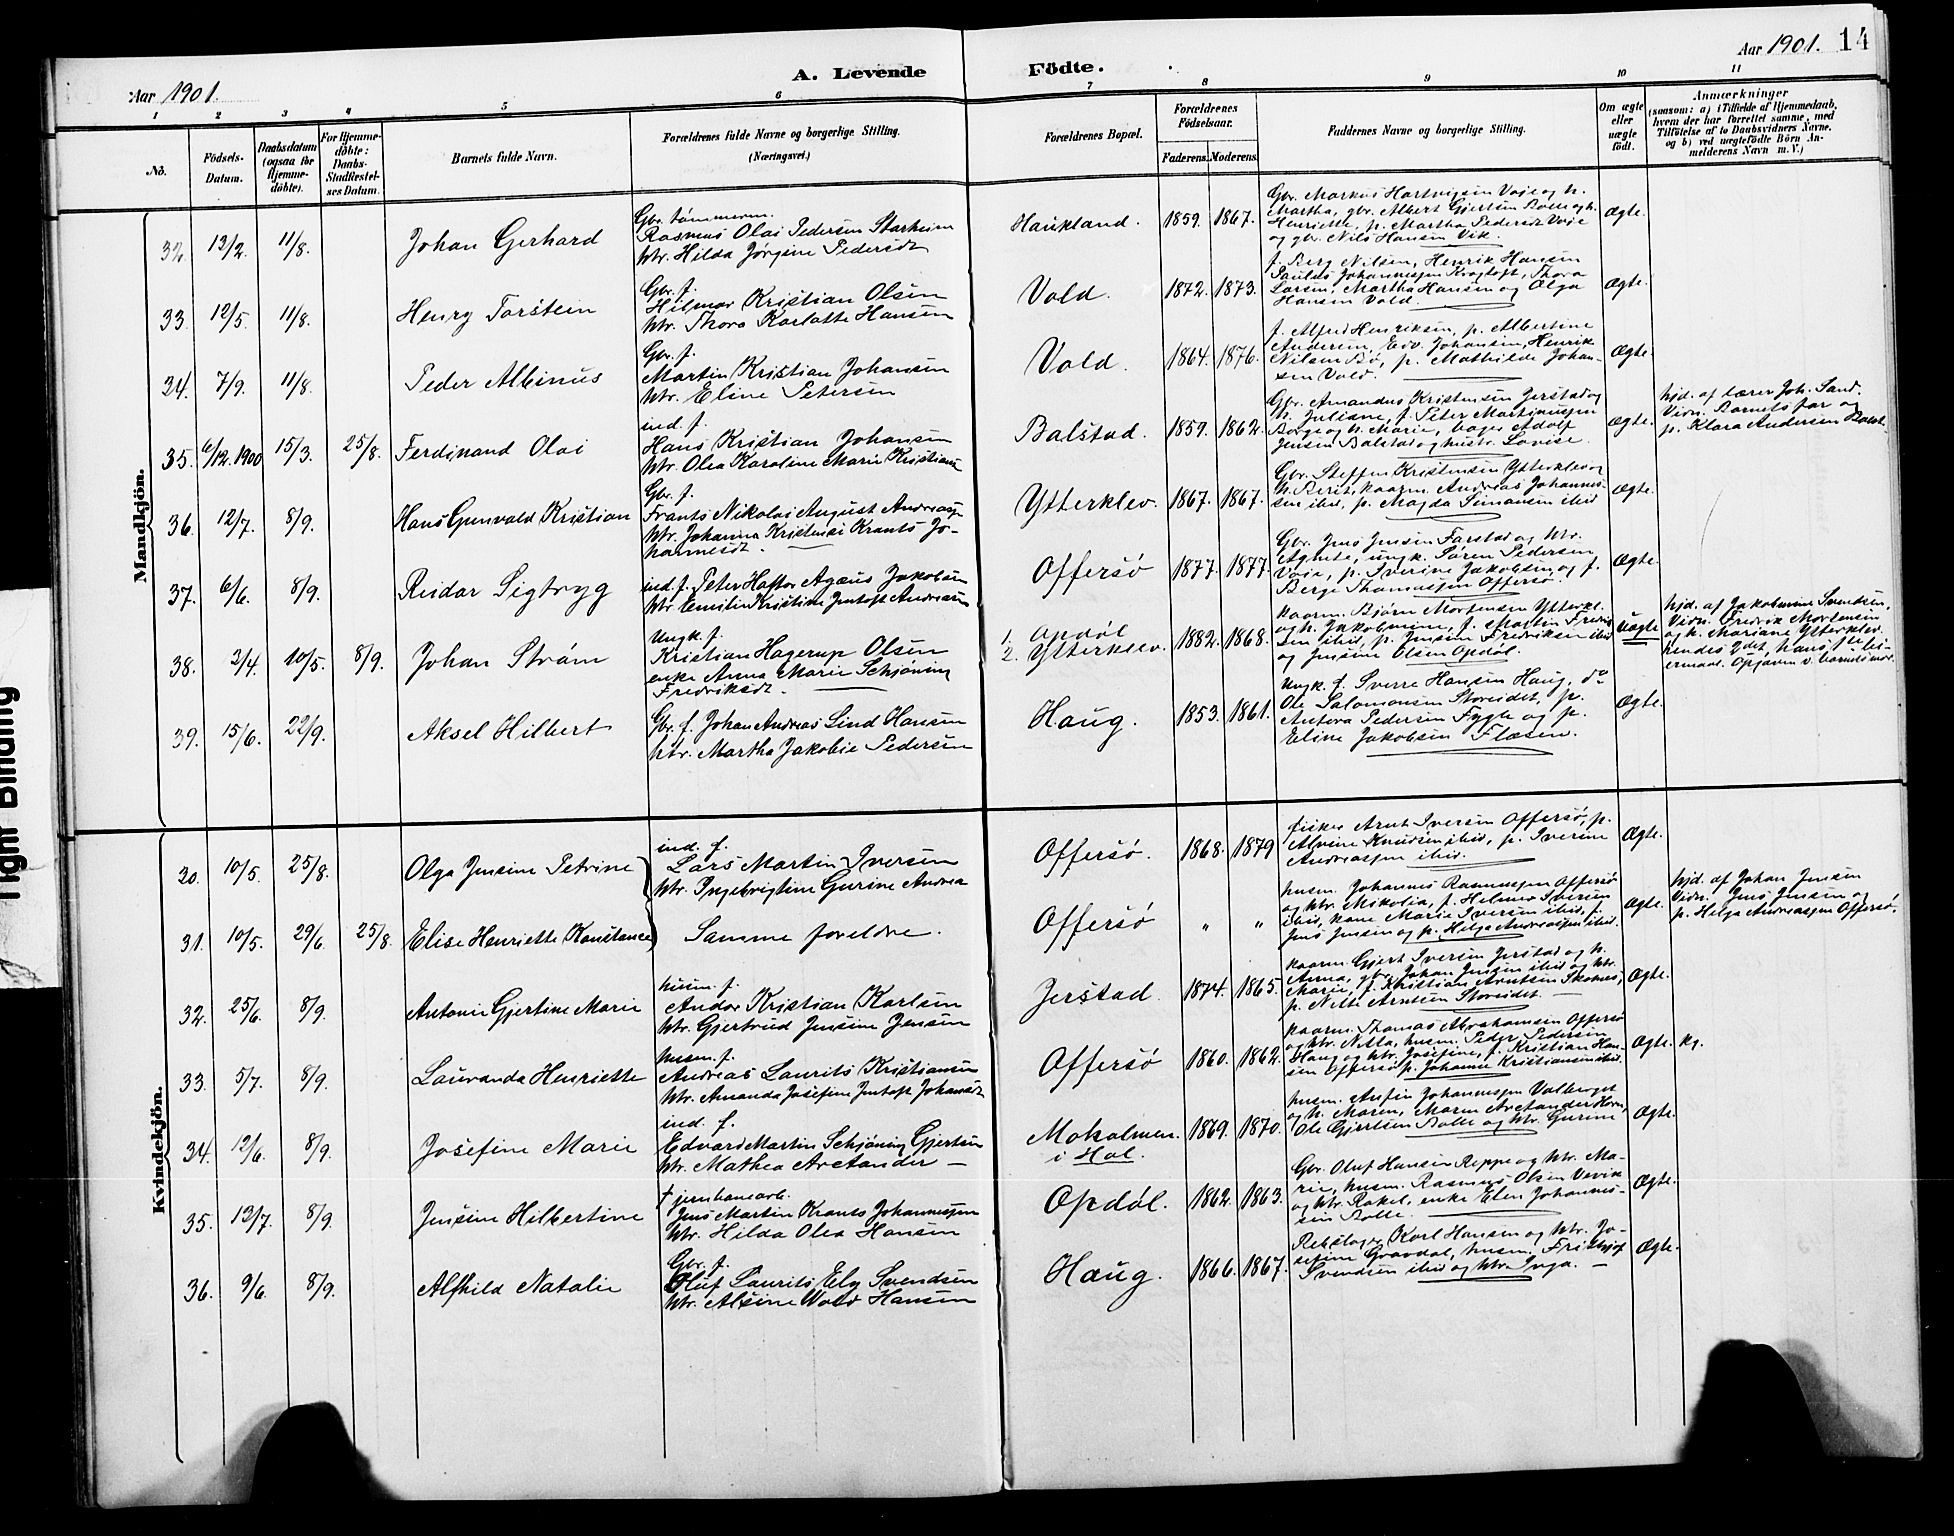 Aar 1901.
A. Levende Födte.
Aar 1901. 14
1 2 3 4 5 6 7 8 9 10 11
No.
Födsels-
Datum.
Daabsdatum
(ogsaa for
Hjemme-
døbte).
For Hjemme-
døbte:
Daabs-
Stadfæstel-
ses Datum.
Barnets fulde Navn.
Forældrenes fulde Navne og borgerlige Stilling.
(Næringsvei.)
Forældrenes Bopæl.
Forældrenes
Födselsaar.
Faderens. Moderens.
Faddernes Navne og borgerlige Stilling.
Om ægte
eller
uægte
født.
Anmærkninger
(saasom: a) i Tilfælde af Hjemmedaab,
hvem der har forrettet samme, med
Tilføielse af to Daabsvidners Navne,
og b) ved uægtefödte Börn An-
melderens Navn m. V.)
Mandkjön.
32. 12/2. 11/8. Johan Gerhard
Gbr. tømmerm.
Rasmus Olai Pedersen Starheim
htr. Hilda Jørgine Pedersdt
Haukland. 1859. 1867.
Gbr. Markus Hartvigsen Voie og h.
Martha, gbr. Albert Gjertsen Bolle og h.
Henriette, p. Martha Pedersdt Voie
og gbr. Nils Hansen Vik.
Ægte.
33. 12/5. 11/8. Henry Torstein
Gbr. f.
Hilmar Kristian Olsen
htr. Thora Karlotte Hansen
Vold. 1872. 1873.
f. Berg Nilsen, Henrik Hansen
Paulus Johannesen Kragtoft, Thora
Larsen, Martha Hansen og Olga
Hansen Vold.
Ægte.
34. 7/9. 11/8. Peder Albinus
Gbr. f.
Martin Kristian Johansen
htr. Eline Petersen
Vold. 1864. 1876.
f. Alfred Henriksen, p. Albertine
Andersen, Edv. Johansen, Henrik
Nilsen Bø, p. Mathilde Johan-
sen Vold.
Ægte.
35. 6/12. 1900 15/3. 25/8. Ferdinand Olai
ind. f.
Hans Kristian Johansen
htr. Olea Karoline Marie Kristians
Balstad. 1859. 1862.
Gbr. Amandus Kristensen Jerstad og
h. Juliane, f. Peter Martinussen
Borge og h. Marie, bager Adolf
Jensen Balstad og hustr. Lovise.
Ægte.
hjd. af lærer Joh. Sand.
Vidn. Barnets far og
p. Klara Andersen Balst.
36. 12/7. 8/9. Hans Gunvald Kristian
Gbr. f.
Frants Nikolai August Andreass
htr. Johanna Kristensi Krants Jo-
hannesdt.
Ytterklev. 1867. 1867.
Gbr. Steffen Kristensen Ytterklev og
h. Berit, kaarm. Andreas Johannes-
sen ibid, p. Magda Simonsen ibid
Ægte.
37. 6/6. 8/9. Reidar Sigtryg
ind. f. Peter Haftor Agæus Jakobsen
htr. Emilie Kristine Jentoft Andreasen
Offersö 1877. 1877.
Gbr. Jens Jensen Farstad og htr.
Aghete, ungk. Søren Pedersen
Voie, p. Iverine Jakobsen og f.
Berge Thomassen Offersø.
Ægte.
38. 2/4. 10/5. 8/9. Johan Strøm
Ungk. f.
Kristian Hagerup Olsen
enke Anna Marie Schjöning
Fredriksdt.
1. Opdøl
2. Ytterklev. 1882. 1868.
kaarm. Bjørn Mortensen Ytterkl.
og h. Jakobmine, f. Martin Fredrik-
sen ibid, p. Jensine Fredriksen ibid
og Jensine Olsen Opdøl.
Uægte
hjd. af Jakobmine Svendsen,
Vidn. Fredrik Mortensen
og h. Mariane Ytterklev.
39. 15/6. 22/9. Aksel Hilbert
Gbr. f. Johan Andreas Lind Hansen
htr. Martha Jakobie Pedersen
Haug. 1853. 1861.
Ungk. f. Sverre Hansen Haug, do
Ole Salomonsen Storeidet, p.
Antora Pedersen Fygle og p.
Eline Jakobsen Flæsen.
Ægte.
Kvindekjön.
30. 10/5. 25/8. Olga Jensine Petrine
ind. f.
Lars Martin Iversen
htr. Ingebrigtine Gurine Andrea
Offersö. 1868. 1879
fisker Arnt Iversen Offersø, p.
Alvine Knudsen ibid, p. Iverine
Andreassen ibid.
Ægte.
31. 10/5. 29/6. 25/8. Elise Henriette Konstance
Samme foreldre.
Offersö " "
husm. Johannes Rasmussen Offersø
og htr. Nikolia, f. Helmer Iversen
ibid, kone Marie Iversen ibid, f.
Jens Jensen og p. Helga Andreassen ibid.
Ægte.
hjd. af Johan Jensen
Vidn. Jens Jensen og
p. Helga Andreassen Offersø.
32. 25/6. 8/9. Antonie Gjertine Marie
husm. f.
Andor Kristian Karlsen
htr. Gjertrud Jensine Jensen
Jerstad 1874. 1865.
kaarm. Gjert Iversen Jerstad og h.
Anna, gbr. Johan Jensen ibid og htr.
Marie, f. Kristian Arntsen Skotnes,
p. Nette Arntsen Storeidet.
Ægte.
33. 5/7. 8/9. Lauranda Henriette
husm. f.
Andreas Laurits Kristiansen
htr. Amanda Josefine Jentoft Johansdt
Offersö 1860. 1862.
kaarm. Thomas Abrahamsen Offersø
og htr. Nitta, husm. Peder Pedersen
Haug og htr. Josefine, f. Kristian Han-
sen Offersø p. Johanna Kristiansen ibid.
Ægte. kj.
34. 12/6. 8/9. Josefine Marie
ind. f.
Edvard Martin Schjöning Gjertsen
htr. Mathea Arctander —
Moholmen
i Hol. 1869. 1870.
husm. Anfin Johannessen Valberget
og h. Maren, Maren Arctander Horn,
Ole Gjertsen Bolle og htr. Gurine
Ægte.
35. 13/7. 8/9. Jensine Hilbertine
† jernbanearb.
Jens Martin Krants Johannessen
htr. Hilda Olea Hansen
Opdöl. 1862. 1863.
Gbr. Oluf Hansen Reppe og htr. Ma-
rie, husm. Rasmus Olsen Urevik
og htr. Rakel, enke Elen Johannes-
sen Bolle.
Ægte.
36. 9/6. 8/9. Alfhild Natalie
Gbr. f.
Oluf Laurits Ely Svendsen
htr. Alsine Wold Hansen
Haug. 1866. 1867.
Rebslager Karl Hansen og htr. Jo-
sefine Gravdal, husm. Frithjof
Svendsen ibid og htr. Inga. —
Ægte.
Tight Binding